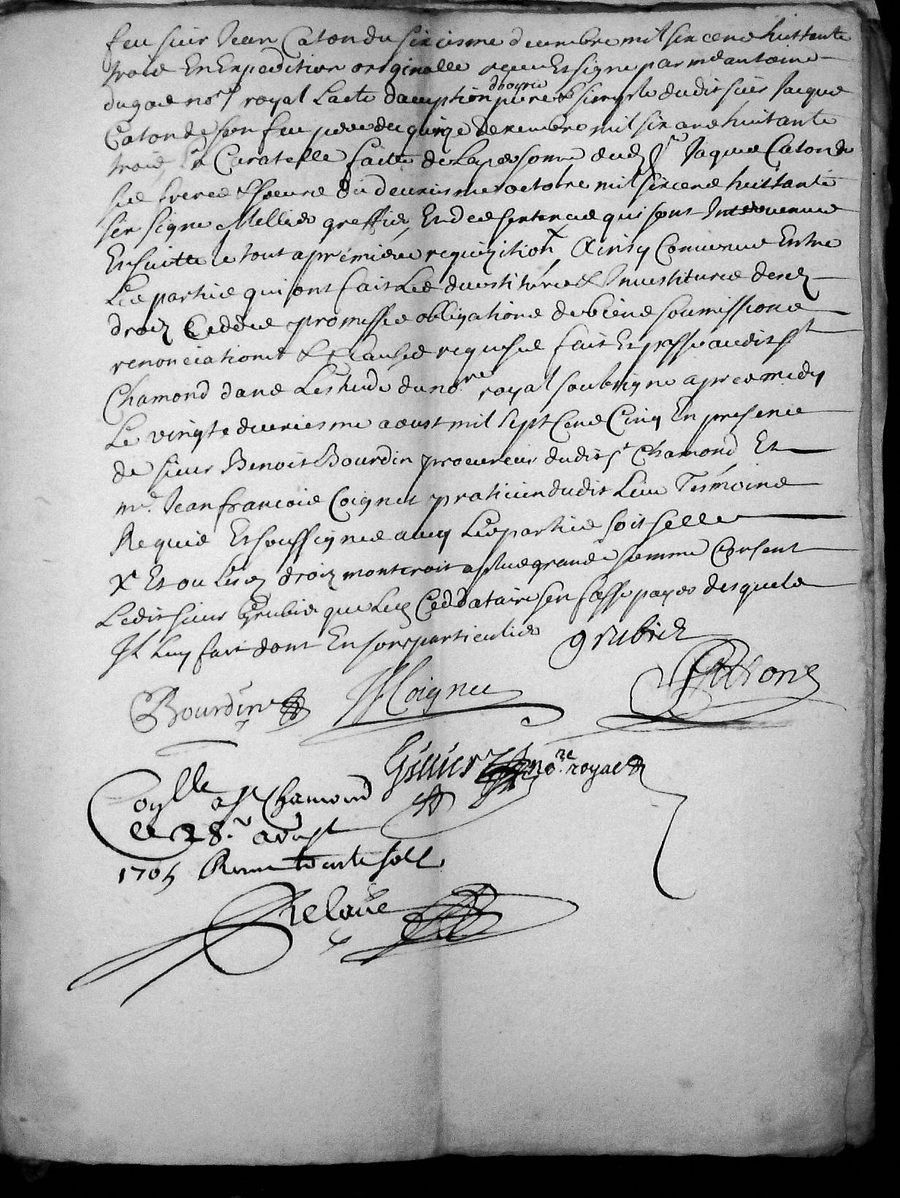 feu sieur Jean Caton du sixiesme decembre mil six cens huittante
trois En Expedition originalle receu Et signe par me antoine
dugas nore royal Lacte daception dhoyrie
pure & simple dudit sieur Jacque
Caton de son feu pere du quinze decembre mil six cens huittante
trois, La Curatelle faite de La personne dud sr Jaque Caton de
ses freres & soeurs du deuxiesme octobre mil six cens huittante
six signe Mellier greffier Et des sentences qui sont Intervenues
Ensuitte le tout a premiere requizition x Ainsy Convenu Entre
Les parties qui ont fait Les devestitures & Investitures desdz
droiz Ceddes promesses obligations de biens soumissions
renonciations & Clauses requises fait Et passe audit st
Chamond dans Lestude du nore royal soubsigne apres midy
Le vingtdeuxiesme aoust mil sept Cens Cinq En presence
de sieur Benoit Bourdin procureur dudit st Chamond Et
mr Jean francois Coignet praticien dudit Lieu Tesmoins
Requis Et soussignes avec Les parties soit selle
x Et ou Lesdz droiz monteroit a plus grande somme Consent
Ledit sieur Grubis que Led Ceddataire sen fasse payer desquels
Il Luy fait dont En son particulier
grubis
Bourdin
Coignet
nore royal
Conlle a st Chamond
Le 28e aoust
1705